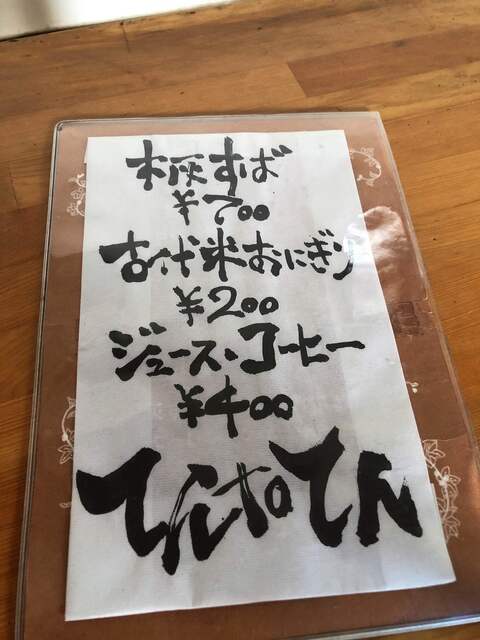 木灰すば
¥700
古代米おにぎり
¥200
ジュース、コーヒー
¥400
てんtoてん